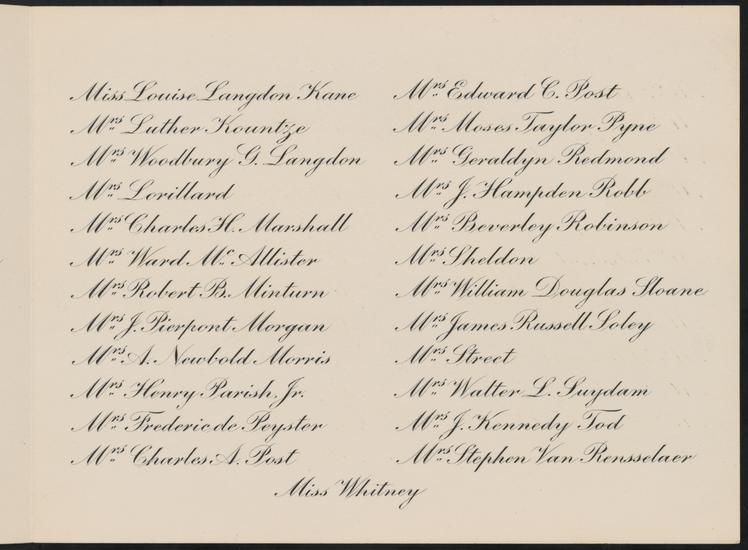 Miss Louise Langdon Kane
Mrs Luther Kountze
Mrs Woodbury G. Langdon
Mrs Lorillard
Mrs Charles H. Marshall
Mrs Ward Mc Allister
Mrs Robert B. Minturn
Mrs J. Pierpont Morgan
Mrs A. Newbold Morris
Mrs Henry Parish. Jr.
Mrs Frederic de Peyster
Mrs Charles A. Post
Mrs Edward C. Post
Mrs Moses Taylor Pyne
Mrs Geraldyn Redmond
Mrs J. Hampden Robb
Mrs Beverley Robinson
Mrs Sheldon
Mrs William Douglas Sloane
Mrs James Russell Soley
Mrs Street
Mrs Walter L. Suydam
Mrs J. Kennedy Tod
Mrs Stephen Van Rensselaer
Miss Whitney